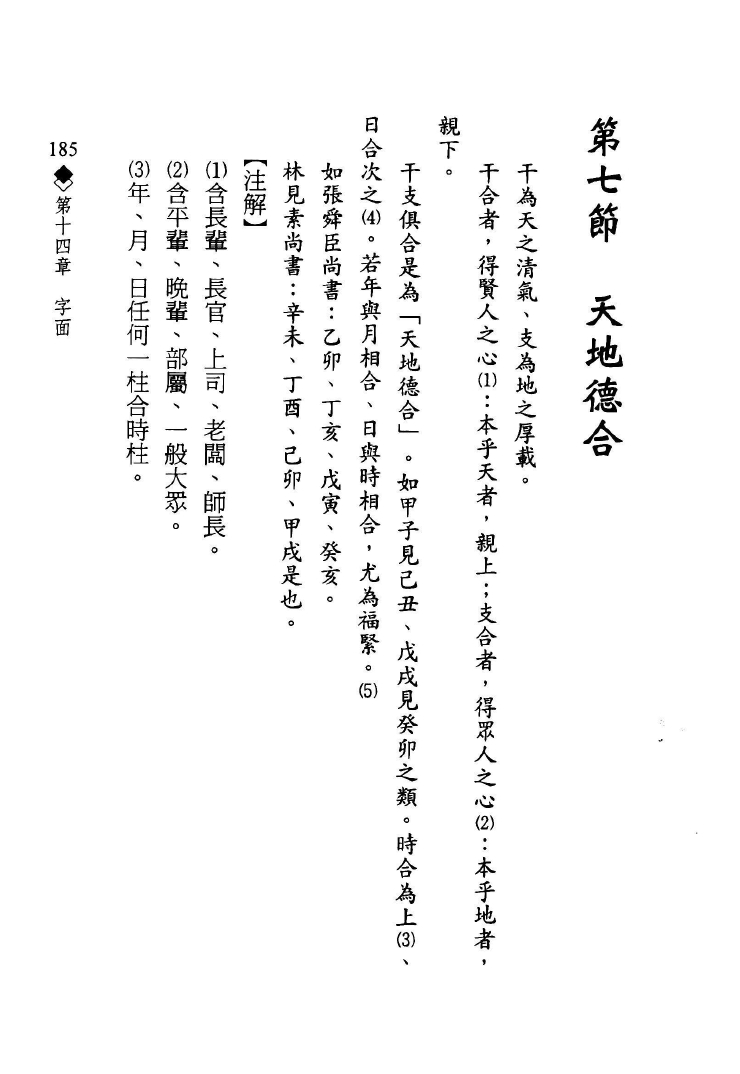 第七節　天地德合
干為天之清氣、支為地之厚載。
干合者，得賢人之心⑴：本乎天者，親上；支合者，得眾人之心⑵：本乎地者，
親下。
干支俱合是為「天地德合」。如甲子見己丑、戊戌見癸卯之類。時合為上⑶、
日合次之⑷。若年與月相合、日與時相合，尤為福緊。⑸
如張舜臣尚書：乙卯、丁亥、戊寅、癸亥。
林見素尚書：辛未、丁酉、己卯、甲戌是也。
【注解】
⑴含長輩、長官、上司、老闆、師長。
⑵含平輩、晚輩、部屬、一般大眾。
⑶年、月、日任何一柱合時柱。
185◆第十四章　字面